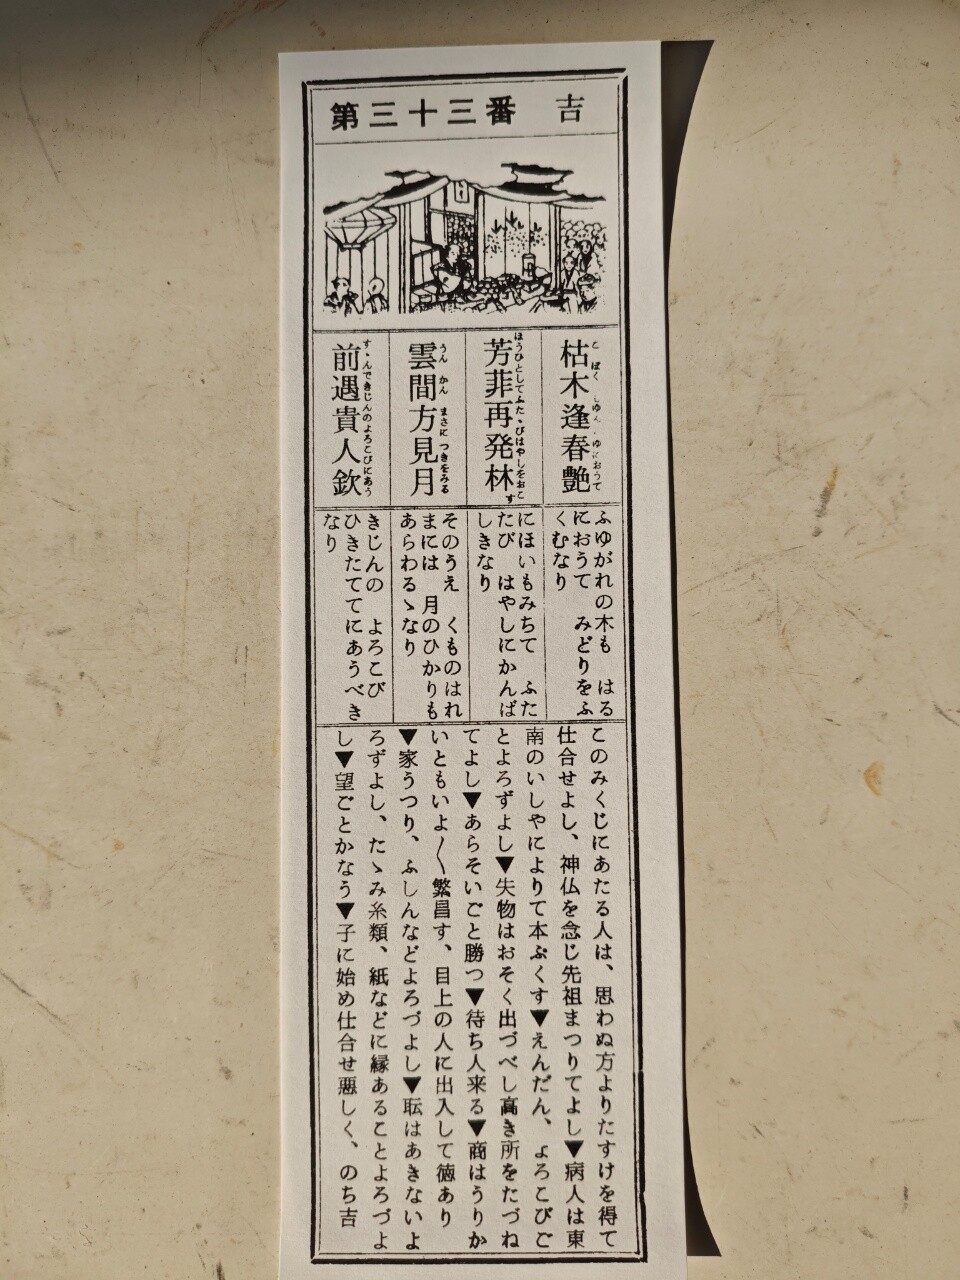 第三十三番 吉
枯木逢春艶
こぼく しゆん ゆにおうて
芳菲再発林
ほうひとしてふたゝびはやしをおこす
雲間方見月
うん かん まさに つきをみる
前遇貴人欽
すゝんできじんのよろこびにあう
ふゆがれの木も はる
におうて みどりをふ
くむなり
にほいもみちて ふた
たび はやしにかんば
しきなり
そのうえ くものはれ
まには 月のひかりも
あらわるゝなり
きじんの よろこび
ひきたててにあうべき
なり
このみくじにあたる人は、思わぬ方よりたすけを得て
仕合せよし、神仏を念じ先祖まつりてよし▼病人は東
南のいしやによりて本ぷくす▼えんだん、よろこびご
とよろずよし▼失物はおそく出づべし高き所をたづね
てよし▼あらそいごと勝つ▼待ち人来る▼商はうりか
いともいよ〱繁昌す、目上の人に出入して徳あり
▼家うつり、ふしんなどよろづよし▼耺はあきないよ
ろずよし、たゝみ糸類、紙などに縁あることよろづよ
し▼望ごとかなう▼子に始め仕合せ悪しく、のち吉